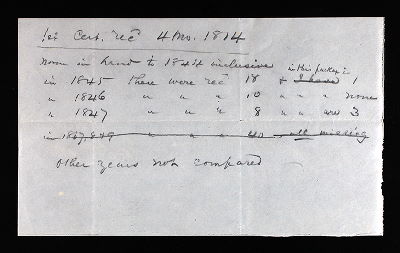 1st Cert. rec 4 Mo. 1814
none in hand to 1844 inclusive
in this packet is
in 1845 there were rec 18 & I have 1
" 1846 " " " 10 " " " none
" 1847 " " " 8 " " are 3
in 1847, 849 " " 40 all missing
Other years not compared